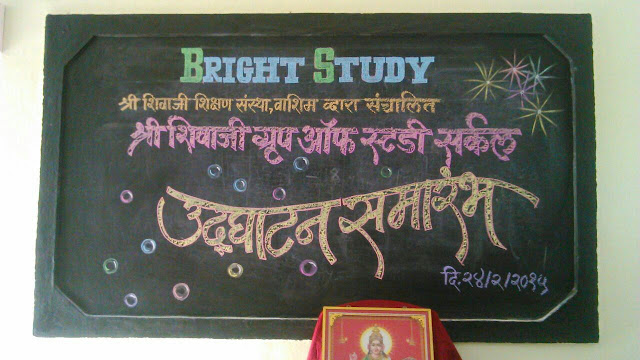 BRIGHT STUDY
श्री शिवाजी शिक्षण संस्था, वाशिम व्दारा संचालित
श्री शिवाजी ग्रुप ऑफ स्टडी सर्कल
उद्घाटन समारंभ
दि. २४/२/२०१५